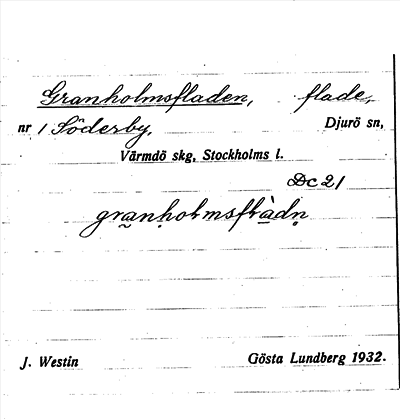 Granholmsfladen, flade,
nr 1 Söderby, Djurö sn,
Värmdö skg, Stockholms l.
Dc 21
gra̰nḥolmsflàdṇ
J. Westin Gösta Lundberg 1932.